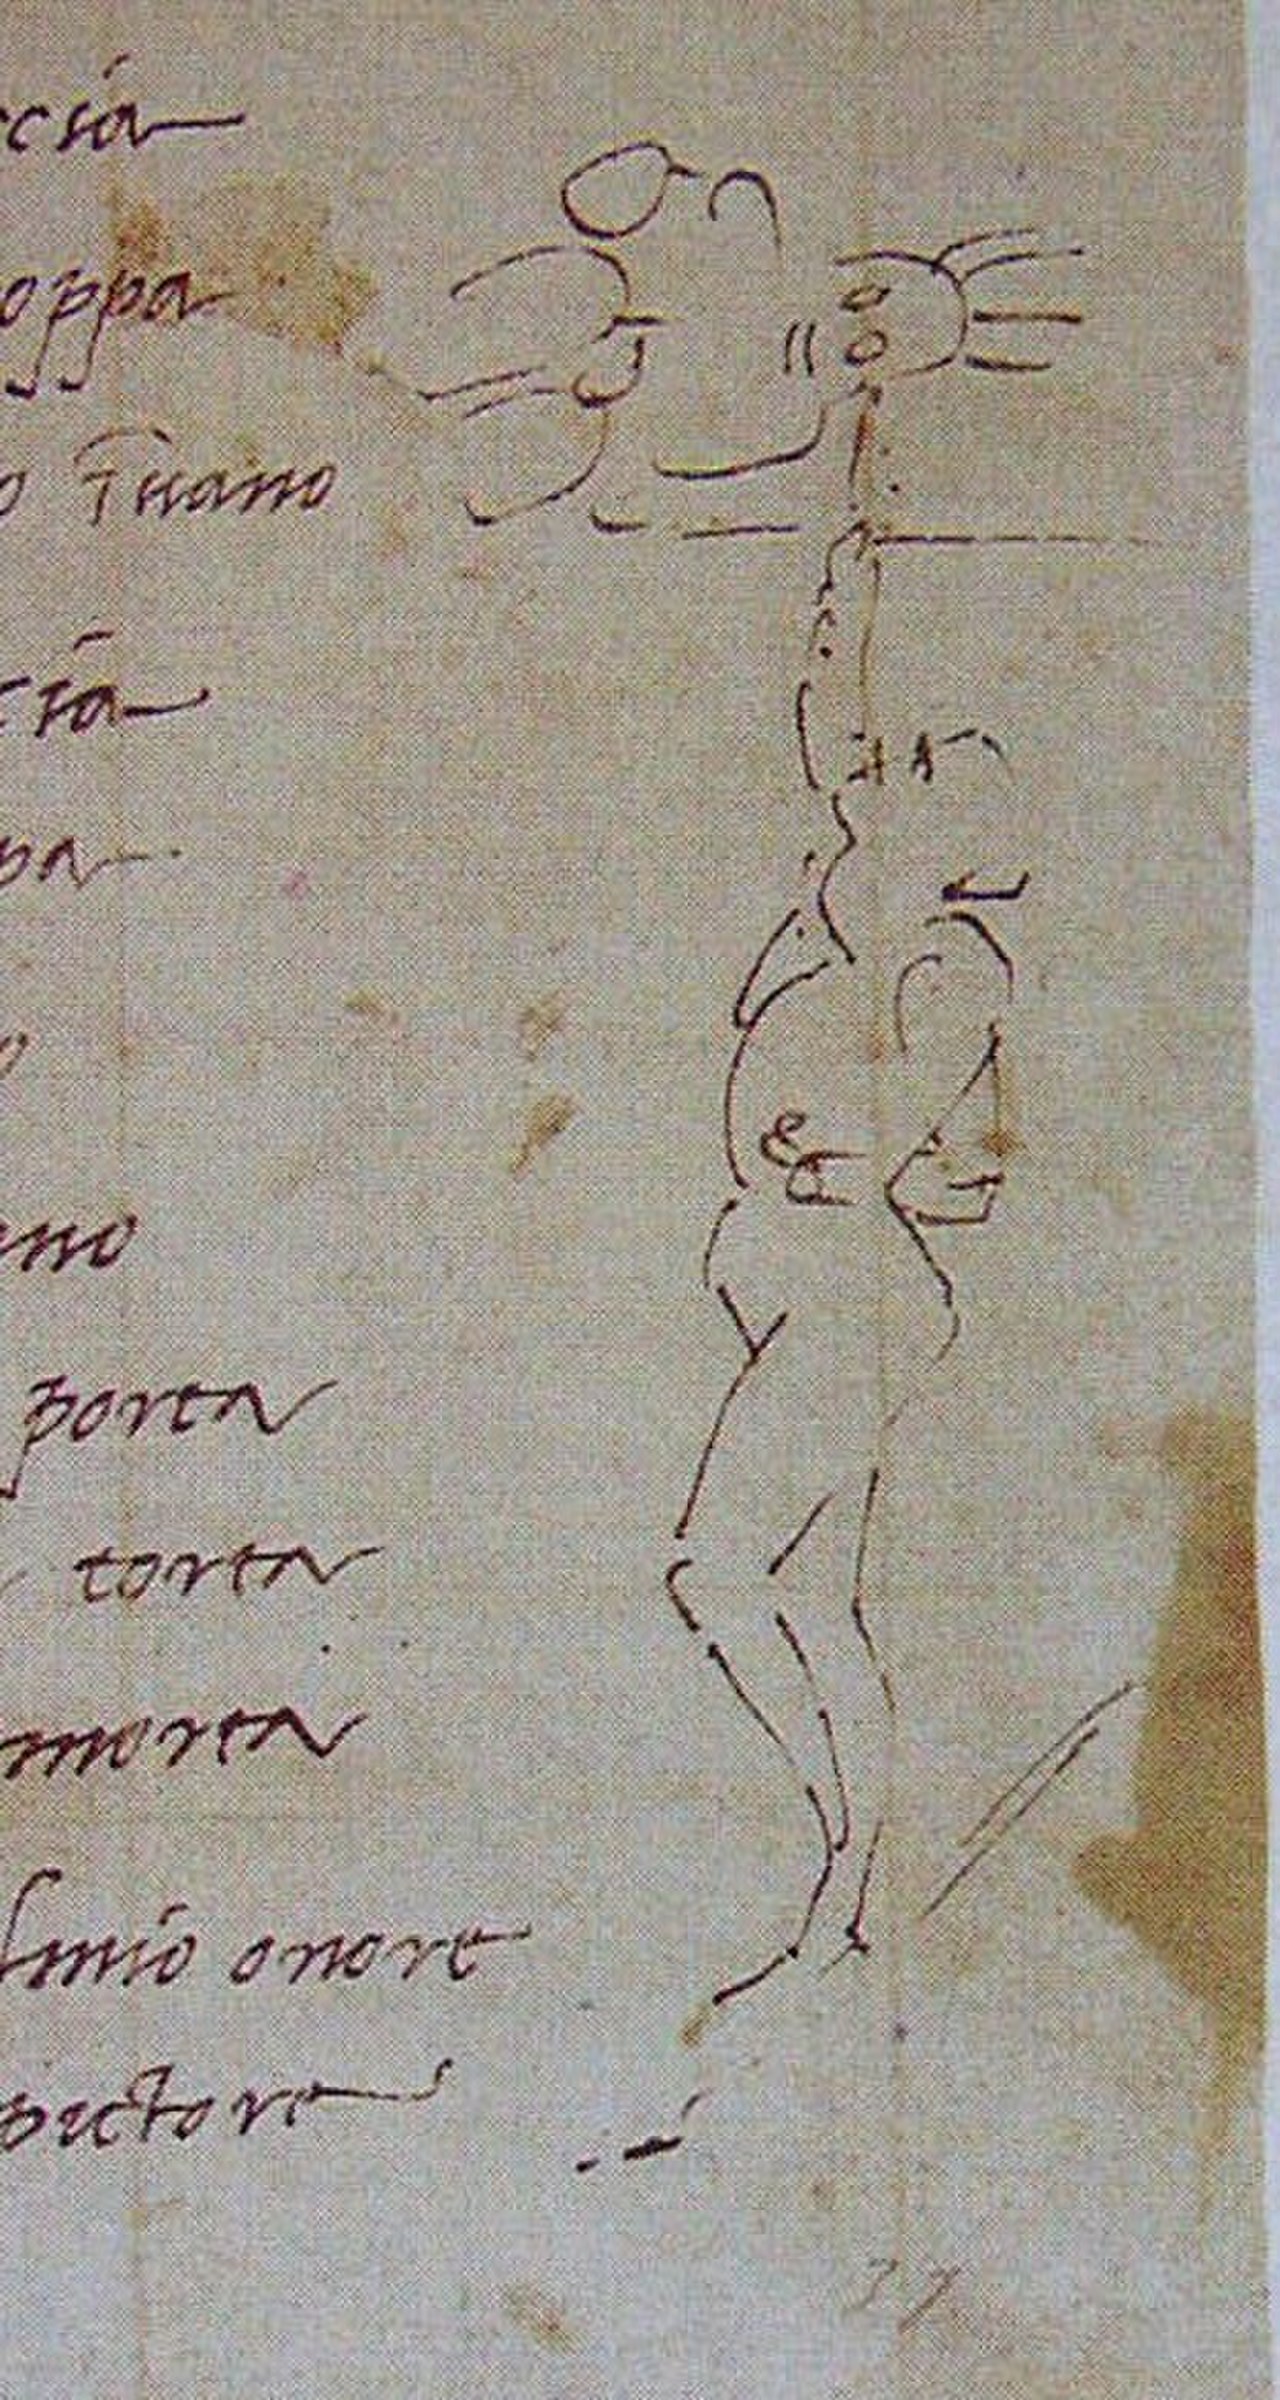 ccia
oppa
o ĩuano
cia
pa
o
ano
porta
torta
morta
l mio onore
pictore